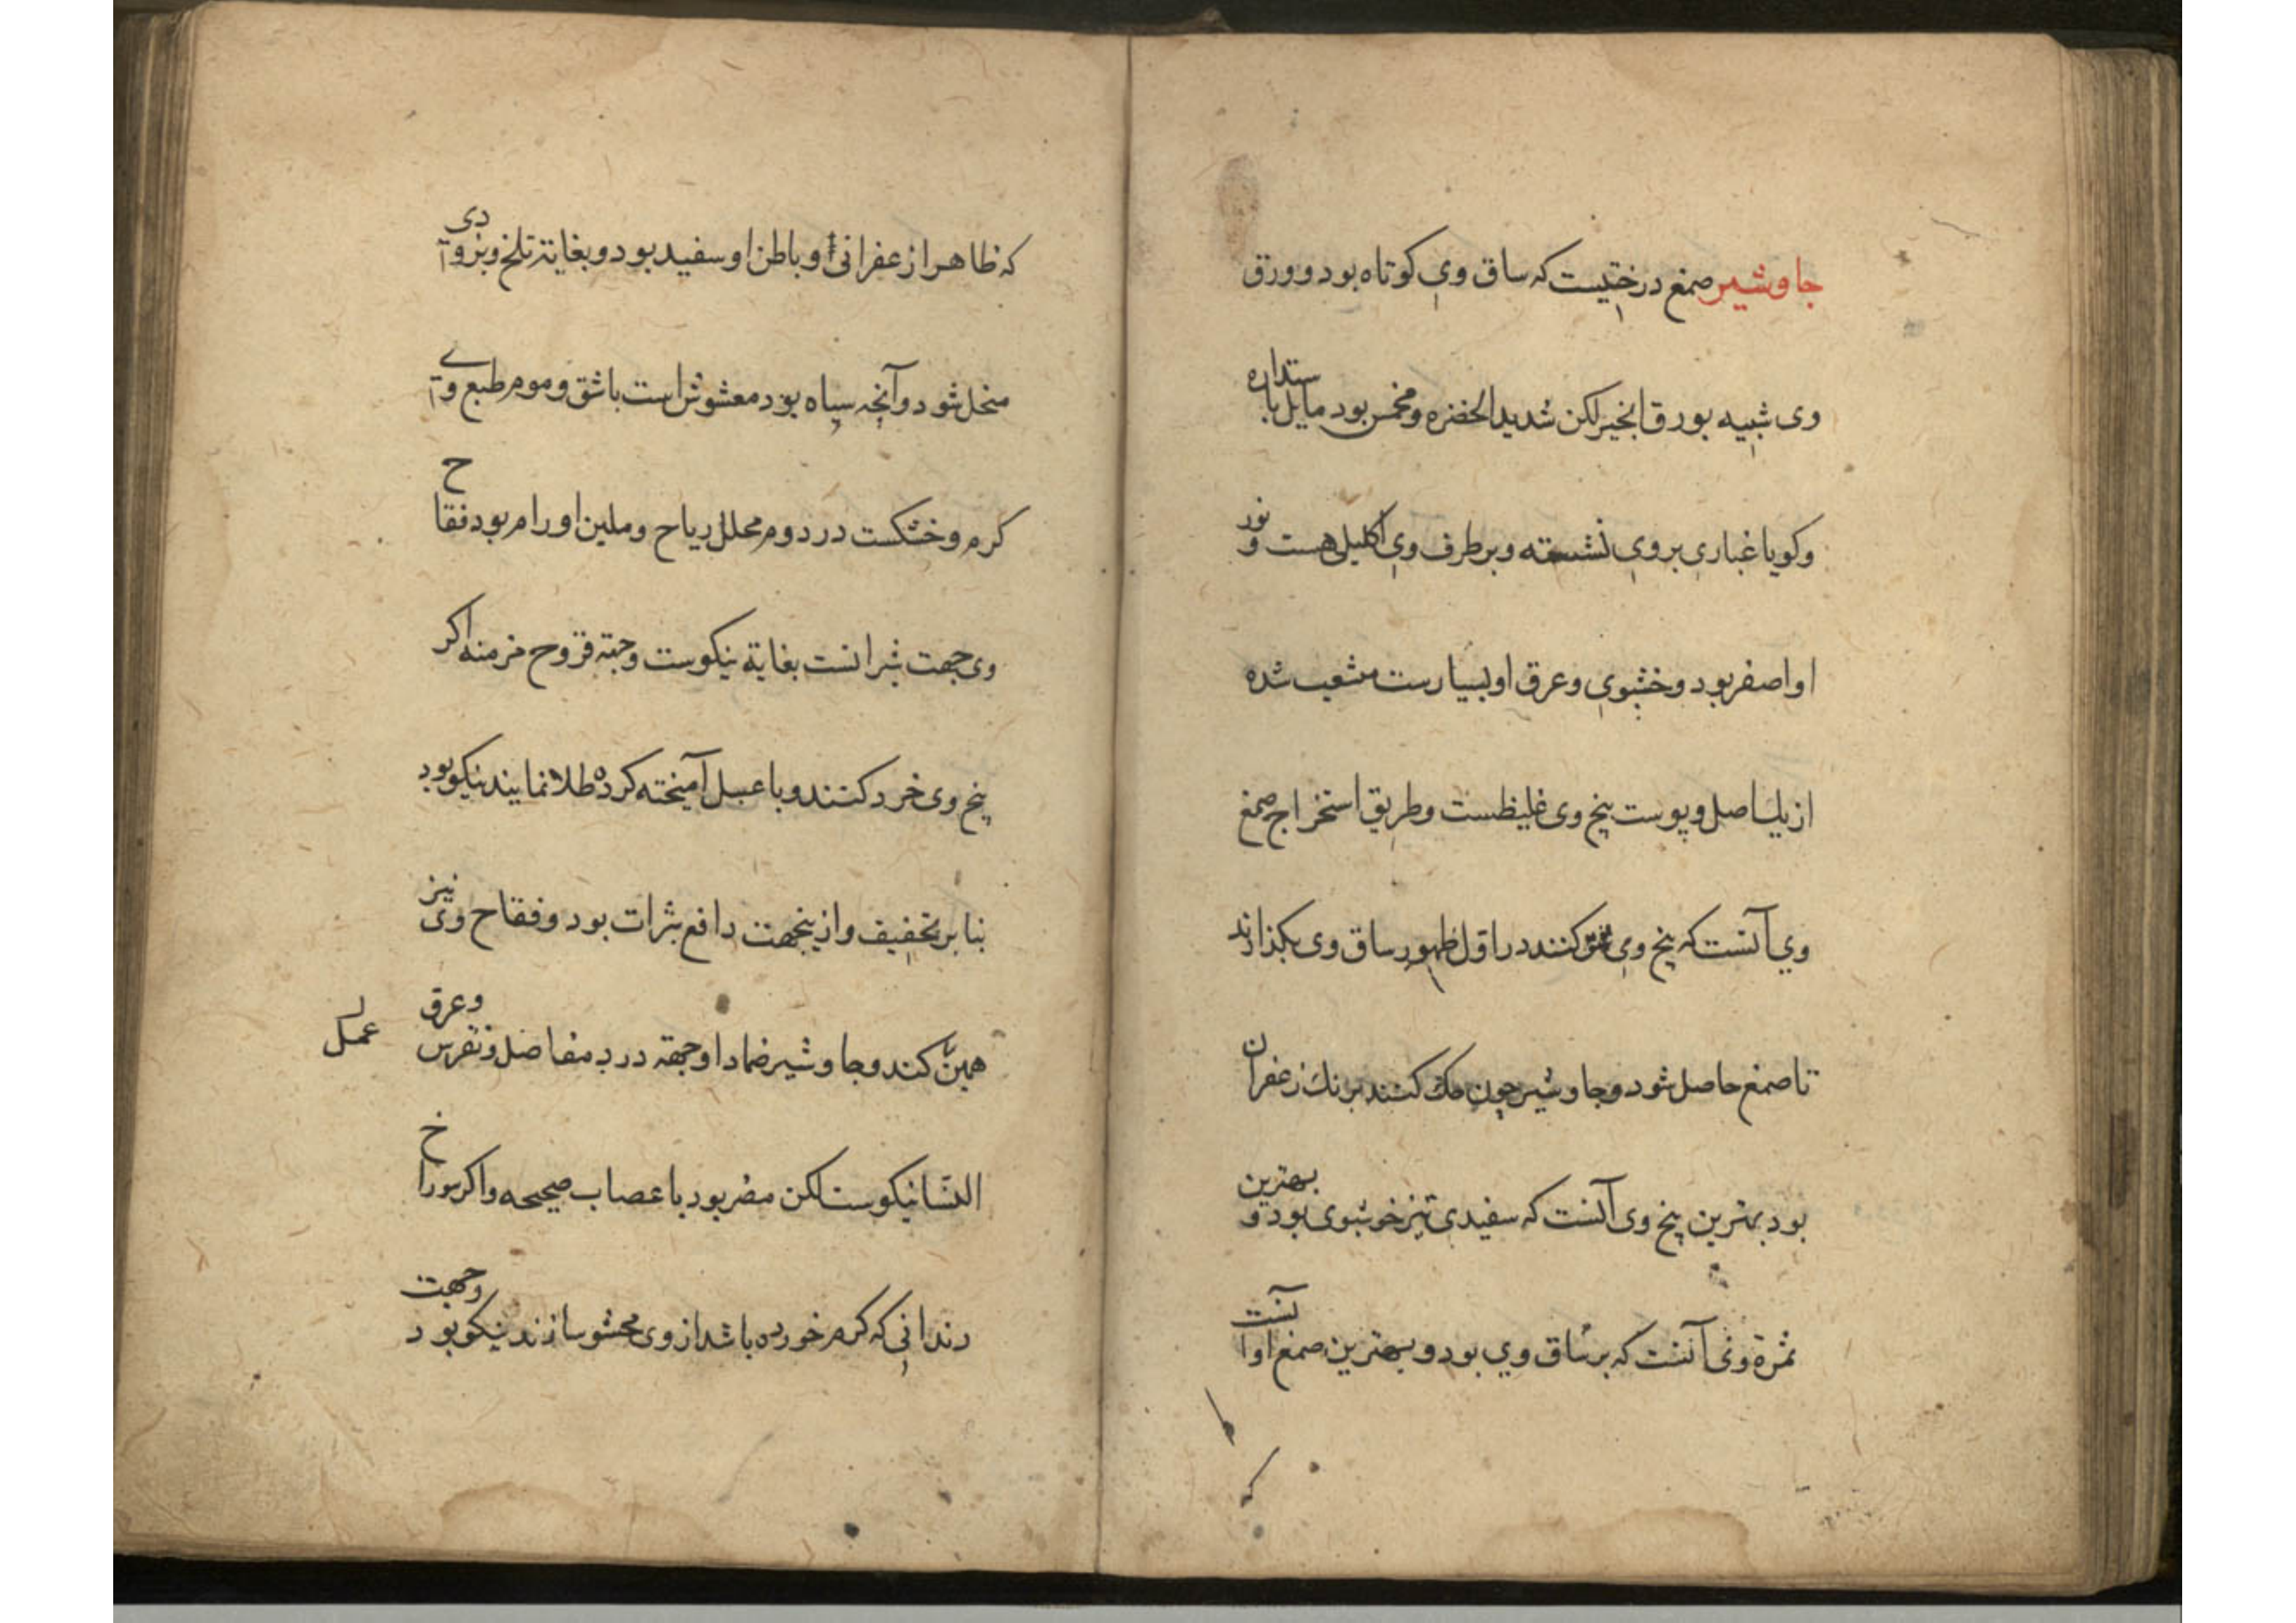 جاوشیر صمغ درختیست که ساق وی کوتاه بود و ورق
وی شبیه بورق انجیر لکن شدید الخضره و مخمس بود مایل باستداره
وکویا غباری بروی نشسته و بر طرف وی اکلیلی هست و نور
او اصفر بود و خشبوی و عرق او بسیارست متشعب شده
از یك اصل و پوست بیخ وی غلیظست و طریق استخراج صمغ
وی آنست که بیخ وی شق کنند در اول ظهور ساق وی بکذارند
تا صمغ حاصل شود و جاوشیر چون حك کنند برنك زعفران
بود بهترین بیخ وی آنست که سفیدی تیز خوشبوی بود و بهترین
ثمرة وی آنست که بر ساق وی بود و بهترین صمغ او آنست
که
که ظاهر او زعفرانی و باطن او سفید بود و بغایة تلخ و بزودی
منحل شود و آنچه سیاه بود مغشوش است باشق و موم طبع وی
کرم و خشکست در دوم محلل ریاح و ملین اورام بود فقاح
وی جهت بثرانست بغایة نیکوست و جهة قروح مزمنه اکر
بیخ وی خرد کنند و با عسل آمیخته کرده طلا نمایند نیکو بود
بنا بر تخفیف و ازینجهت دافع بثرات بود و فقاح وی نیز
همین کند و جاوشیر ضمادا و جهة درد مفاصل و نقرس وعرق
عمل
النسا نیکوست لکن مضر بود باعصاب صحیحه و اکر سوراخ
دندانی که کرم خورده باشد از وی محشو سازند نیکو بود وجهت